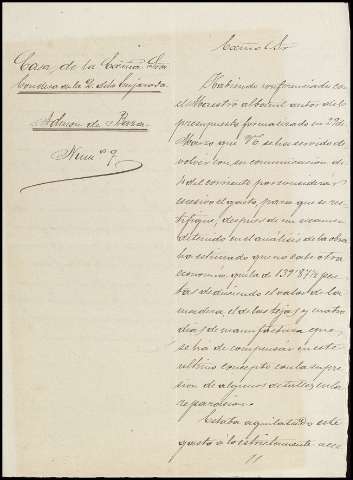 Casa de la
Condesa de la V. de la Enjarada
Admon de Baza
Num. 9.
Habiendo conferenciado con
el Maestro albañil autor de la
presupuesto formalizado en 27 de
Marzo que V. se ha servido de
volver con su comunicacion de
del corriente por considerar
excesivo el gasto, para que se rec-
tifique, despues de un examen
detenido en el análisis de la obra
ha estimado que no cabe otra
economia, con la de 139'87½ pe-
tas deduciendo el valor de la
madera el de las tejas y cuatro
dias de manufactura que
se ha de compensar en este
ultimo concepto con la supre-
sion de algunos detalles en la
reparacion.
Estaba aquilatado este
gasto a lo estrictamente nece